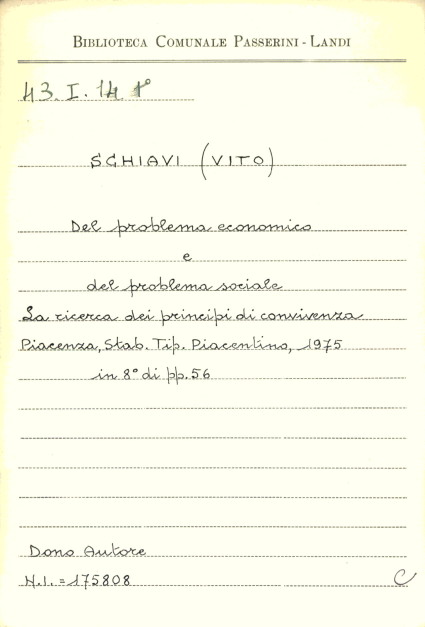 BIBLIOTECA COMUNALE PASSERINI - LANDI
43. I. 14 1°
SCHIAVI (VITO)
Del problema economico
e
del problema sociale
La ricerca dei principi di convivenza
Piacenza, Stab. Tip. Piacentino, 1975
in 8° di pp. 56
Dono Autore
N.I. = 175808
C